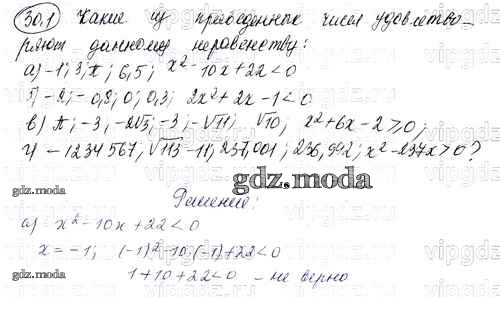 30.1 Какие из приведенных чисел удовлетво-
ряют данному неравенству:
а) -1; 3; π; 6,5; x² - 10x + 22 < 0
б) -2; -0,8; 0; 0,3; 2x² + 2x - 1 < 0
в) π; -3; -2√3; -3; -√11; √10; x² + 6x - 2 ≥ 0;
г) -1234567; √113 - 11; 237,001; 236,992; x² - 237x > 0?
gdz.moda
Решение:
а) - x² - 10x + 22 < 0
x = -1; (-1)² - 10·(-1) + 22 < 0
gdz.moda
1 + 10 + 22 < 0 - не верно
vipgdz